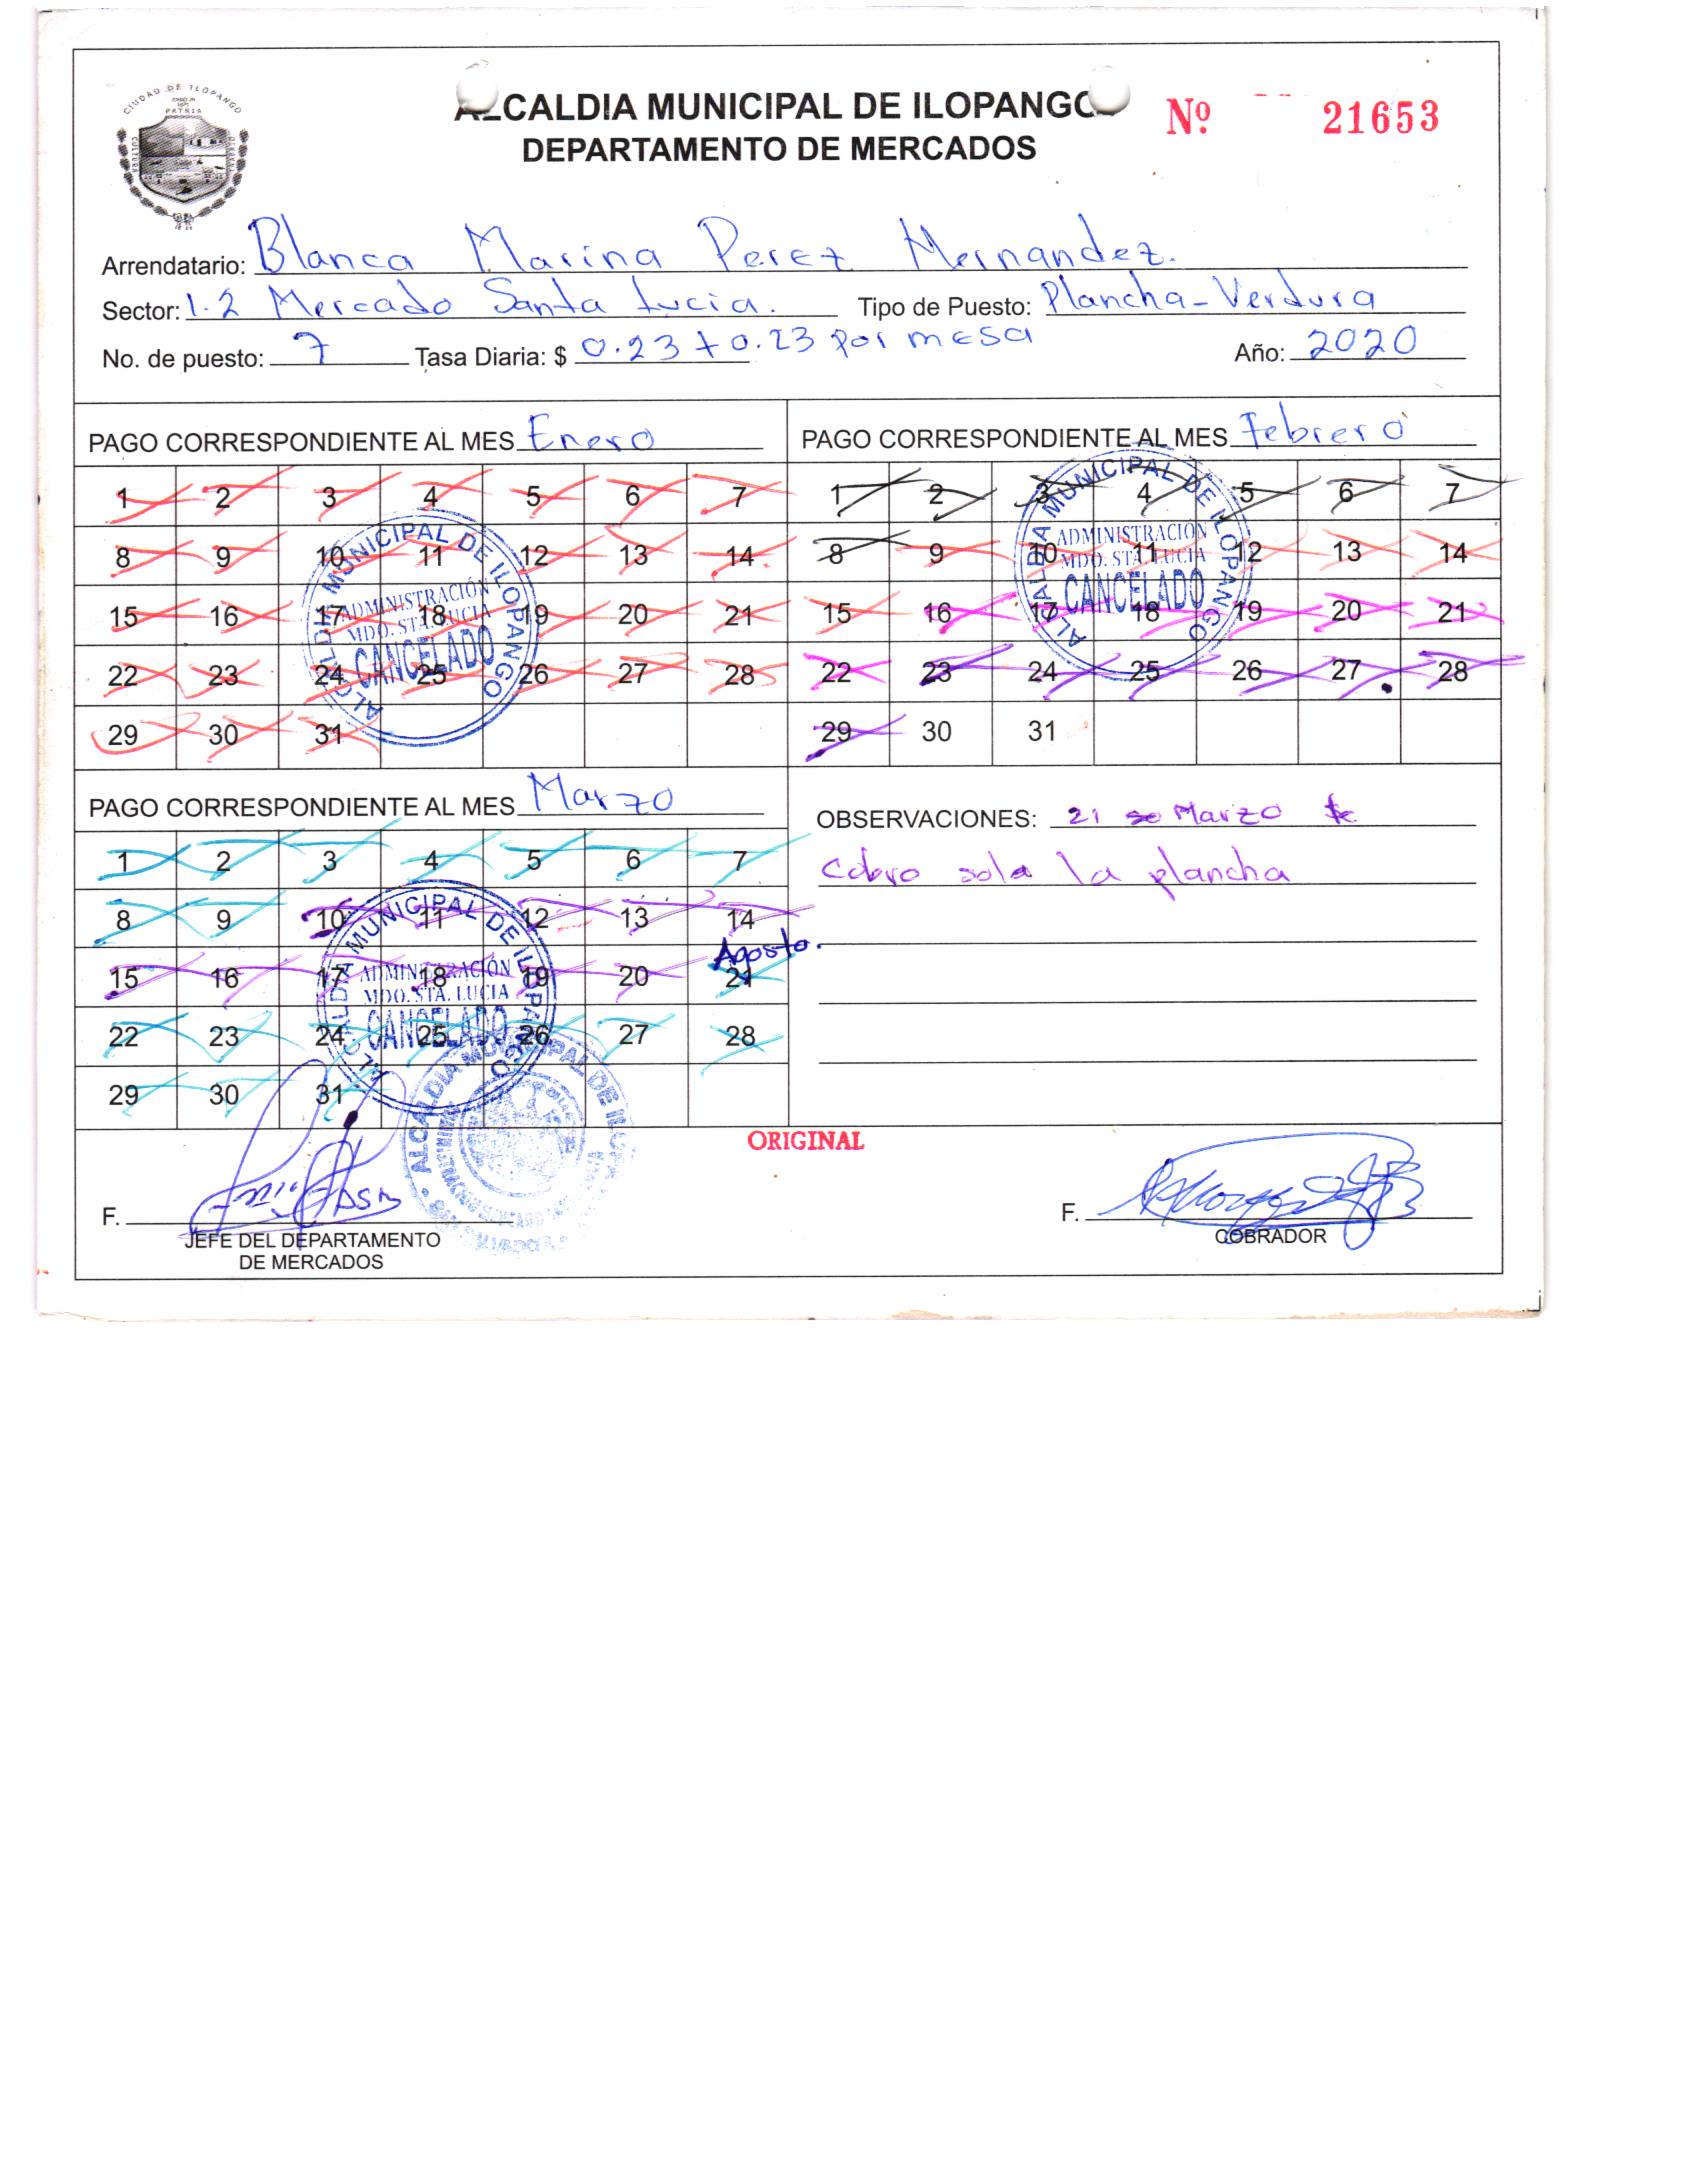 CIUDAD DE ILOPANGO
PATRIA
CULTURA
ALCALDIA MUNICIPAL DE ILOPANGO
DEPARTAMENTO DE MERCADOS
Nº 21653
Arrendatario: Blanca Marina Perez Hernandez.
Sector: 1.2 Mercado Santa Lucia. Tipo de Puesto: Plancha-Verdura
No. de puesto: 7 Tasa Diaria: $ 0.23 + 0.23 por mesa Año: 2020
PAGO CORRESPONDIENTE AL MES Enero
1 2 3 4 5 6 7
8 9 10 11 12 13 14
15 16 17 18 19 20 21
22 23 24 25 26 27 28
29 30 31
ALCALDIA MUNICIPAL DE ILOPANGO
ADMINISTRACIÓN
MDO. STA. LUCIA
CANCELADO
PAGO CORRESPONDIENTE AL MES Febrero
1 2 3 4 5 6 7
8 9 10 11 12 13 14
15 16 17 18 19 20 21
22 23 24 25 26 27 28
29 30 31
ALCALDIA MUNICIPAL DE ILOPANGO
ADMINISTRACIÓN
MDO. STA. LUCIA
CANCELADO
PAGO CORRESPONDIENTE AL MES Marzo
1 2 3 4 5 6 7
8 9 10 11 12 13 14
Agosto.
15 16 17 18 19 20 21
22 23 24 25 26 27 28
29 30 31
ALCALDIA MUNICIPAL DE ILOPANGO
ADMINISTRACIÓN
MDO. STA. LUCIA
CANCELADO
OBSERVACIONES: 21 Marzo se
cobro sola la plancha
ALCALDIA MUNICIPAL DE
ORIGINAL
F.
JEFE DEL DEPARTAMENTO
DE MERCADOS
F.
COBRADOR